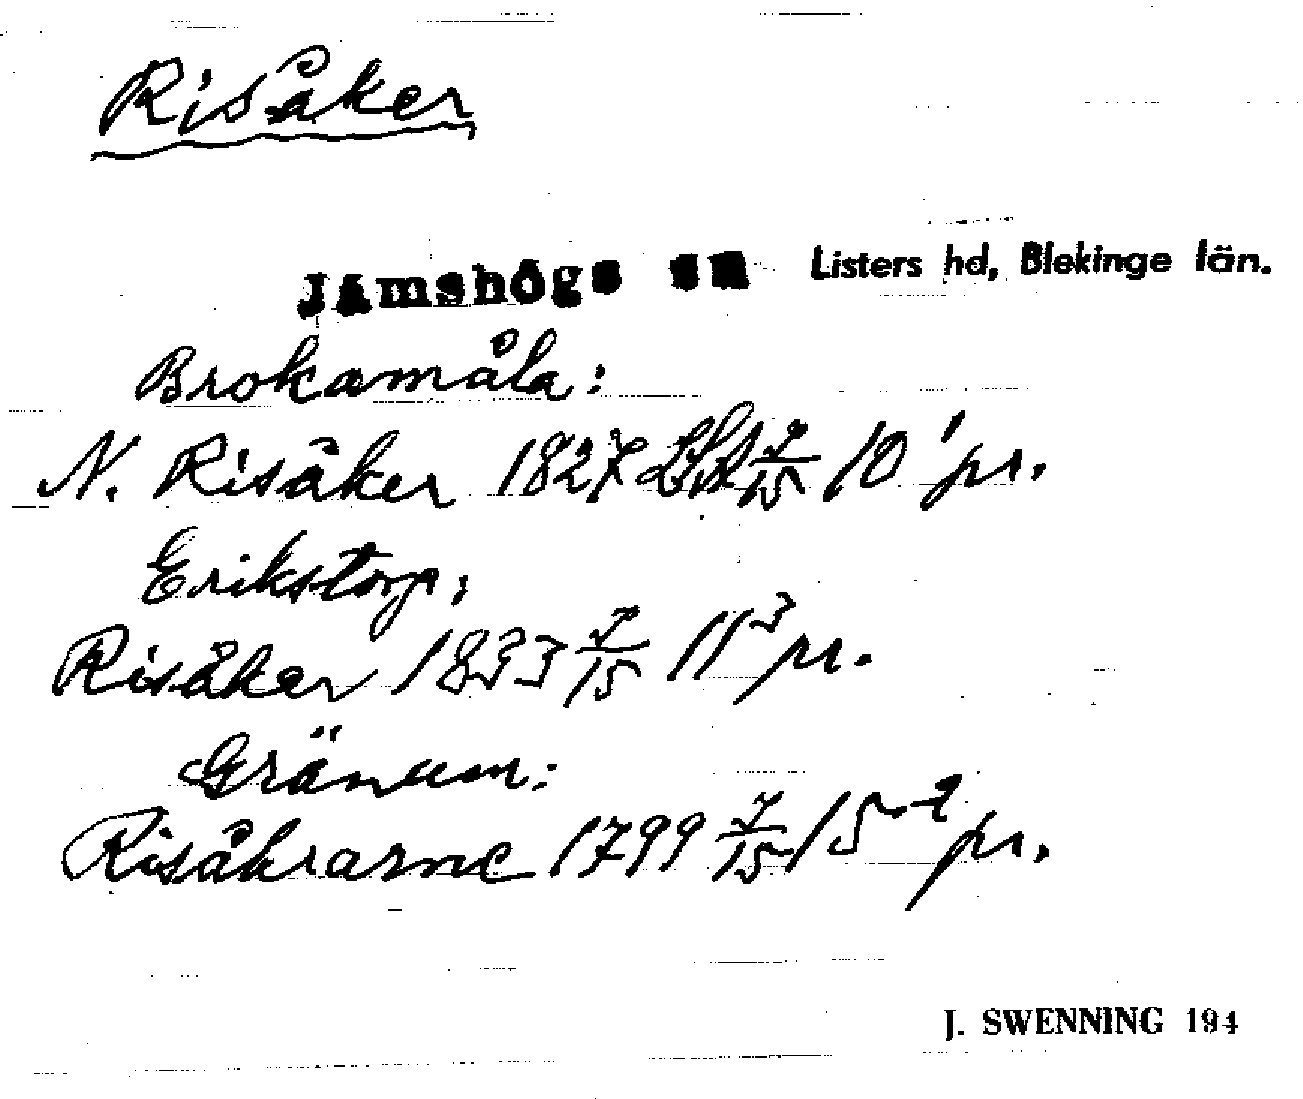 Risåker
Jämshögs sn Listers hd, Blekinge län.
Brokamåla:
N. Risåker 1827 7/15 10¹ pr.
Erikstorp:
Risåker 1833 7/15 11³ pr.
Gränum:
Risåkrarne 1799 7/15 15² pr.
J. SWENNING 194